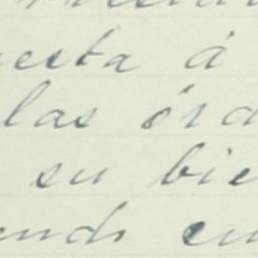 esta á
las órd
su bie
ends en